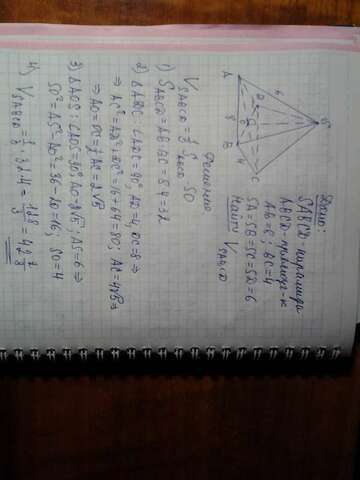 Дано:
SABCD - пирамида
ABCD - прямоуг-к
AB = 8; BC = 4
SA = SB = SC = SD = 6
Найти V SABCD
S
6
D
C
O
4
A
8
B
Решение
V SABCD = 1/3 S ABCD · SO
1) S ABCD = AB · BC = 8·4 = 32
2) ΔADC: ∠ADC = 90°, AD = 4, DC = 8 ⇒
⇒ AC² = AD² + DC² = 16 + 64 = 80; AC = 4√5 ⇒
⇒ AO = OC = 1/2 AC = 2√5
3) ΔAOS: ∠AOS = 90°, AO = 2√5; AS = 6 ⇒
SO² = AS² - AO² = 36 - 20 = 16; SO = 4
4) V SABCD = 1/3 · 32·4 = 128/3 = 42 2/3